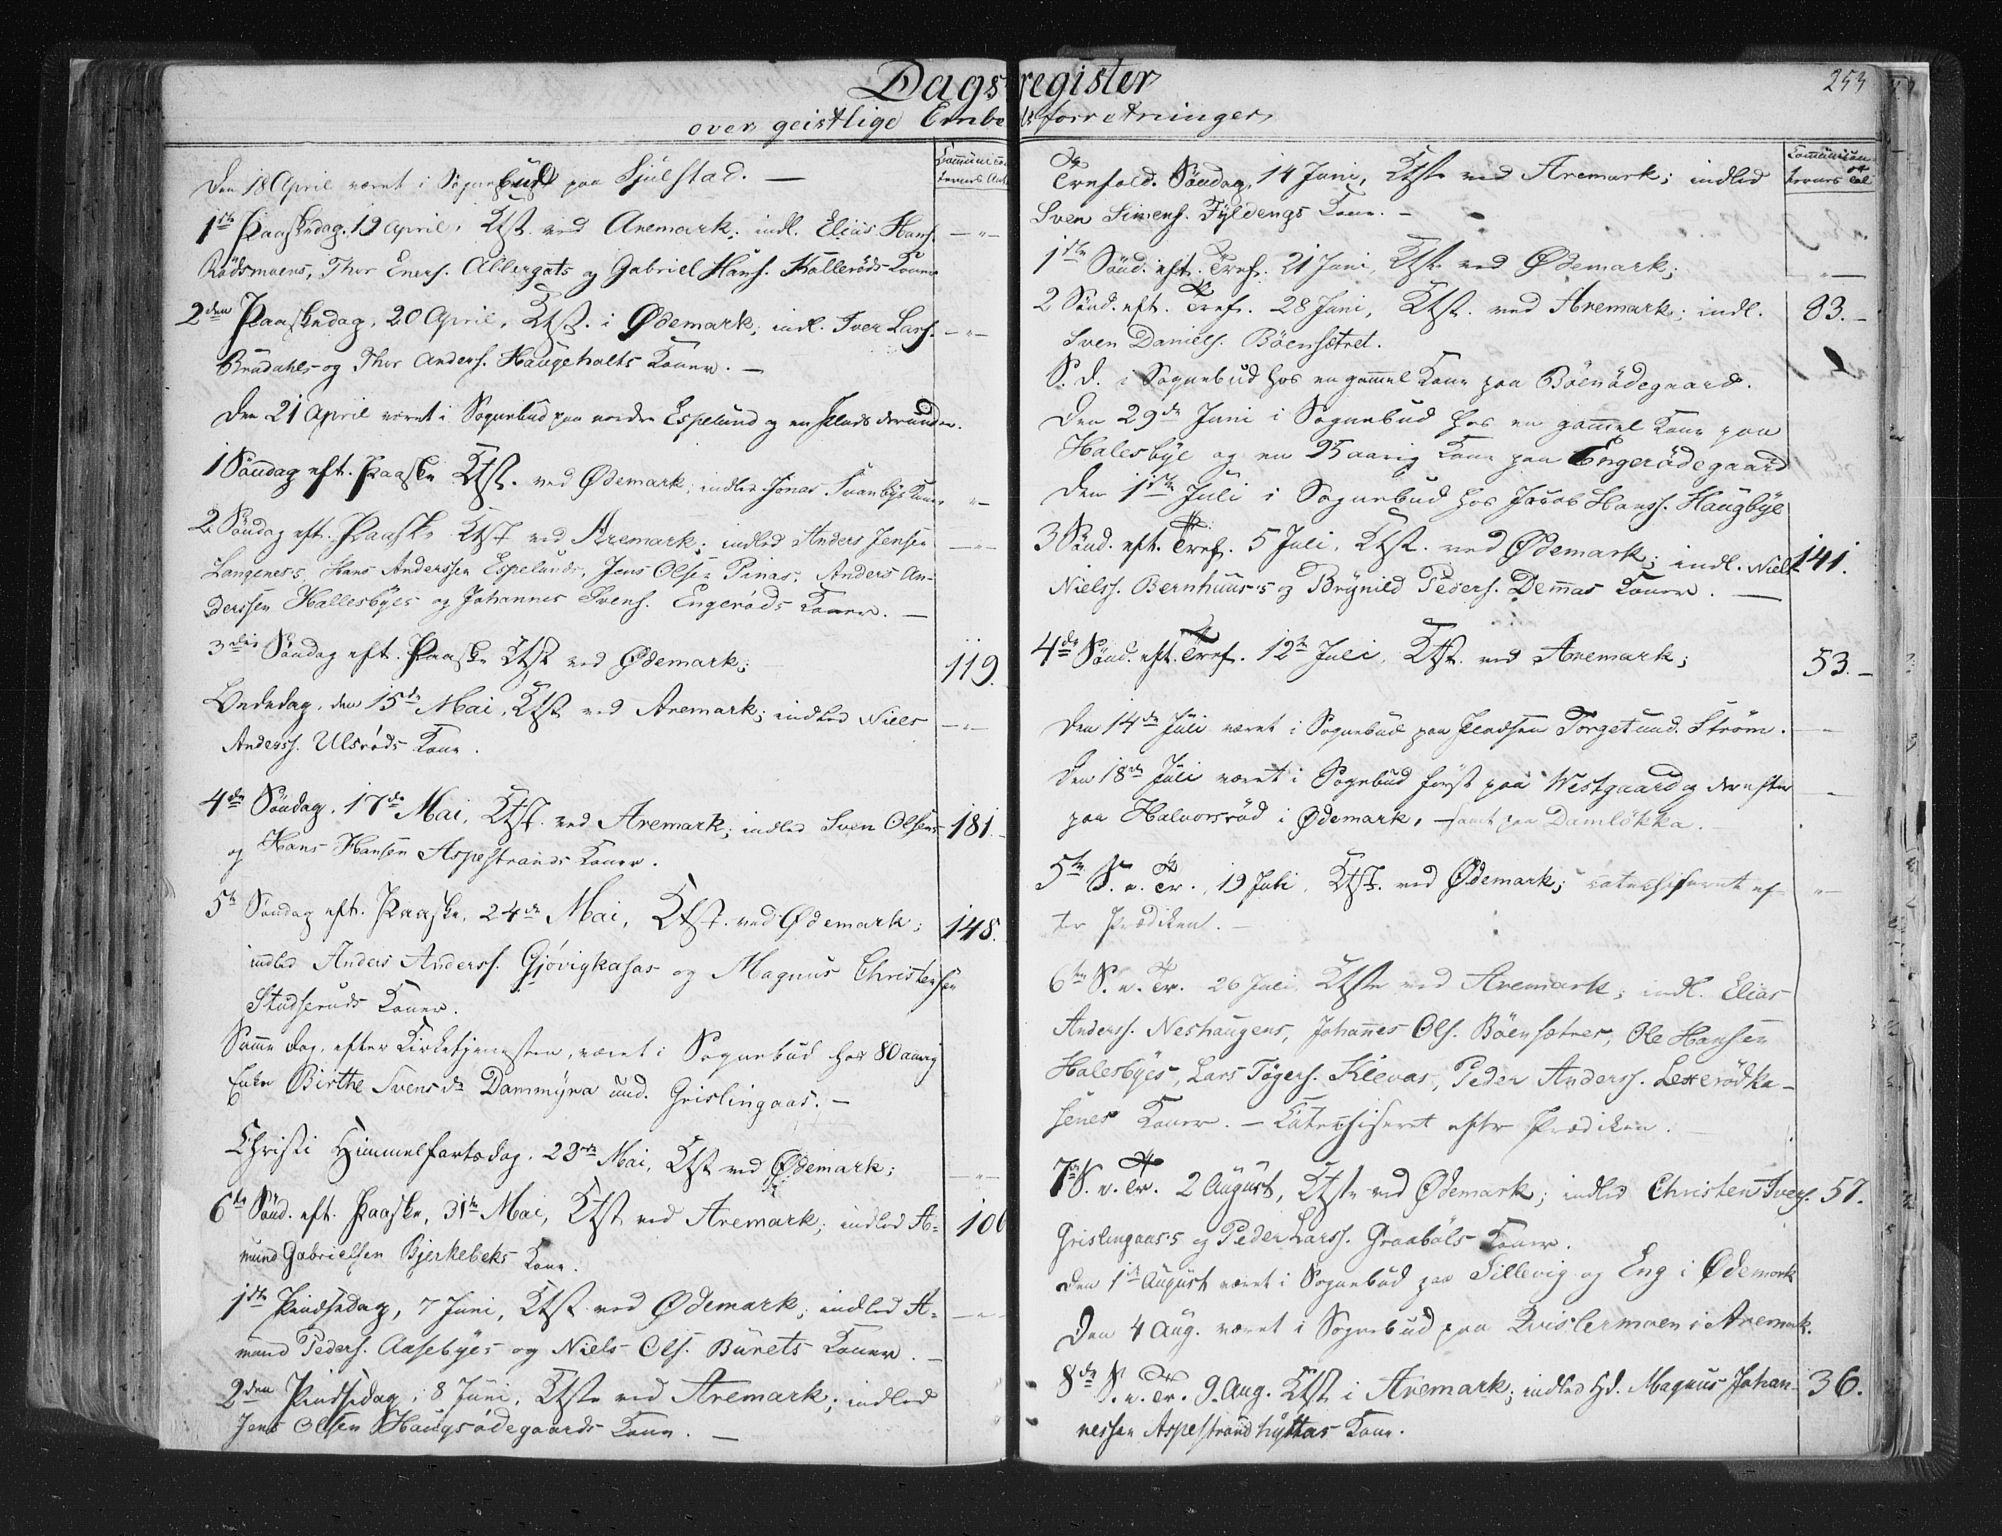 Dagsregister
253
over geistlige Embedsforretninger
Communican-
ternes Ant.
Den 18 April været i Sognebud paa Sjulstad. —
1ste Paaskedag. 19 April. Ktst. ved Aremark; indl. Elias Hans. — " —
Rødsmoens, Thor Eners. Allergots og Gabriel Hans. Kallerøds Koner
2den Paaskedag, 20 April, Ktst. i Ødemark; indl. Iver Lars. — " —
Brudahls og Thor Anders. Haugeholts Koner. —
Den 21 April været i Sognebud paa nordre Espelund og en Plads derunder.
1 Søndag eft. Paaske Ktst. ved Ødemark; indled Jonas Svanbys Kone "
2 Søndag eft. Paaske Ktst ved Aremark; indled Anders Jensen — " —
Langenes's, Hans Anderssen Espelunds, Jens Olsen Pinas, Anders An-
derssen Hallesbyes og Johannes Svens. Engerøds Koner. —
3die Søndag eft. Paaske Ktst ved Ødemark; 119.
Bededag, den 15de Mai, Ktst ved Aremark; indled Niels — " —
Anderss. Ulsrøds Kone.
4de Søndag, 17de Mai, Ktst. ved Aremark; indled Sven Olsens 181.
og Hans Hansen Aspestrands Koner.
5te Søndag eft. Paaske, 24de Mai, Ktst. ved Ødemark; 148.
indled Anders Anderss. Gjøvigkasas og Magnus Christensen
Studseruds Koner.
Samme Dag, efter Kirketjenesten, været i Sognebud hos 80 aarig
Enke Birthe Svensdr Dammyra und. Grislingaas. —
Christi Himmelfartsdag. 28de Mai, Ktst ved Ødemark; — " —
6te Sønd. eft. Paaske, 31te Mai, Ktst ved Aremark; indled A- 106
mund Gabrielsen Bjerkebeks Kone.
1ste Pindsedag, 7 Juni, Ktst ved Ødemark; indled A- — " —
mund Peders. Aasebyes og Niels Ols. Burets Koner. —
2den Pindsedag, 8 Juni, Ktste ved Aremark; indled
Jens Olsen Haugsødegaards Kone. —
Communican-
ternes Tal
Trefold. Søndag 14 Juni, Ktste ved Aremark; indled
Sven Simens. Fyldengs Kone. —
1ste Sønd. eft. Tref. 21 Juni, Ktste ved Ødemark; — " —
2 Sønd. eft. Tref. 28 Juni, Ktst. ved Aremark; indl. 83. —
Sven Daniels. Böensætret.
S. D. i Sognebud hos en gammel Kone paa Böenödegaard.
Den 29de Juni i Sognebud hos en gammel Kone paa
Halesbye og en 95 aarig Kone paa Engerødegaard
Den 1ste Juli i Sognebud hos Jacob Hanss. Haugbye
3 Sønd. eft. Tref. 5 Juli, Ktst. ved Ødemark; indl. Niels 141.
Nielss. Bernhuus's og Brynild Peders. Demmas Koner. —
4de Sønd. eft. Tref. 12te Juli, Ktst. ved Aremark; 53. —
Den 14de Juli været i Sognebud paa Pladsen Torget und. Strøm. — " —
Den 18de Juli været i Sognebud først paa Westgaard og derefter
paa Halvorsrød i Ødemark, — samt paa Damløkka. —
5te S. e. Tr. 19 Juli, Ktst. ved Ødemark; catechiseret ef- " —
ter Prædiken. —
6te S. e. Tr. 26 Juli, Ktste ved Aremark; indl. Elias
Anderss. Neshaugens, Johannes Ols. Böensætres, Ole Hansen
Halesbyes, Lars Tøgers. Klevas, Peder Anderss. Lexerødka-
senes Koner. — Katechiseret efter Prædiken. —
7de S. e. Tr. 2 August, Ktste ved Ødemark; indled Christen Ivers. 57.
Grislingaas's og Peder Larss. Graabøls Koner.
Den 1ste August været i Sognebud paa Tillevig og Eng i Ødemark
Den 4 Aug. været i Sognebud paa Qvislermoen i Aremark.
8de S. e. Tr. 9. Aug. Ktst i Aremark; indled Hd. Magnus Johan- 36.
nessen Aspestrandhyttas Kone.